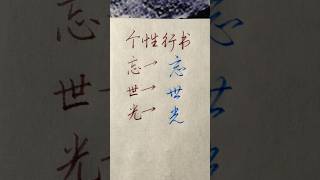 个性行书
忘→忘
世→世
光→光